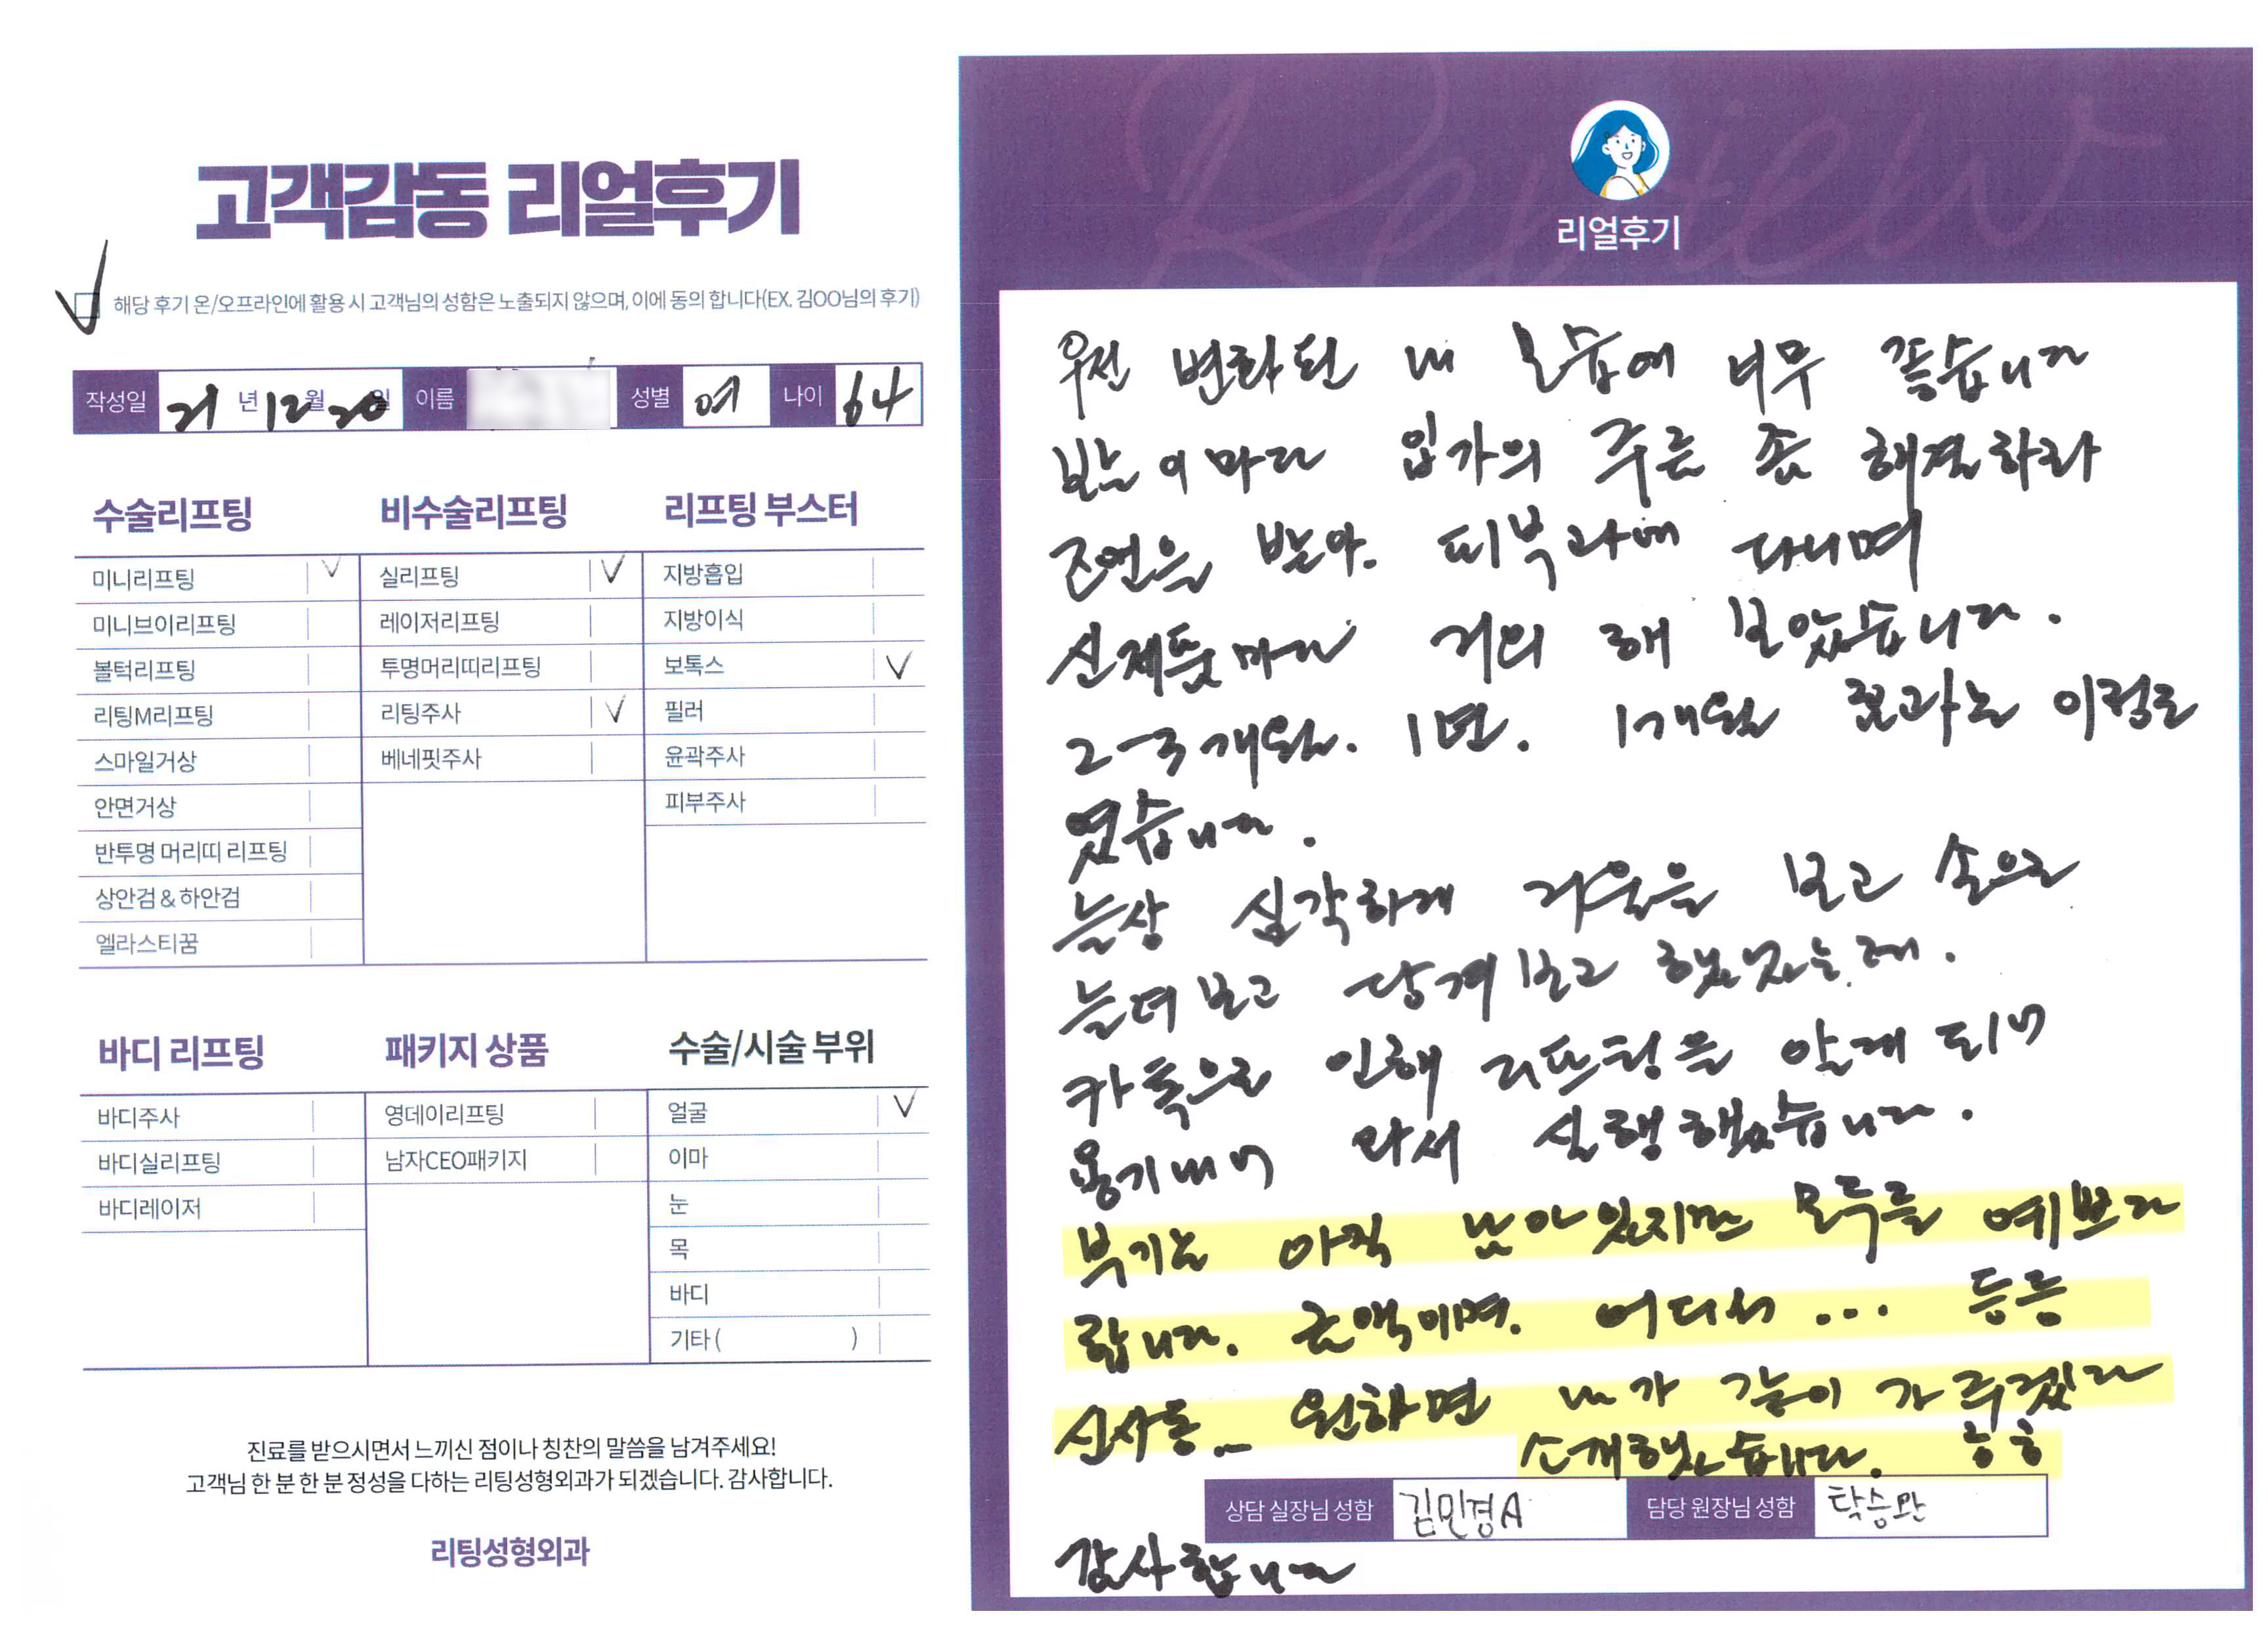 고객감동 리얼후기
해당 후기 온/오프라인에 활용 시 고객님의 성함은 노출되지 않으며, 이에 동의 합니다(EX. 김OO님의 후기)
작성일 21 년 12 월 20 일 이름 성별 여 나이 64
수술리프팅
미니리프팅 V
미니브이리프팅
볼턱리프팅
리팅M리프팅
스마일거상
안면거상
반투명 머리띠 리프팅
상안검 & 하안검
엘라스티꿈
비수술리프팅
실리프팅 V
레이저리프팅
투명머리띠리프팅
리팅주사 V
베네핏주사
리프팅 부스터
지방흡입
지방이식
보톡스 V
필러
윤곽주사
피부주사
바디 리프팅
바디주사
바디실리프팅
바디레이저
패키지 상품
영데이리프팅
남자CEO패키지
수술/시술 부위
얼굴 V
이마
눈
목
바디
기타 ( )
진료를 받으시면서 느끼신 점이나 칭찬의 말씀을 남겨주세요!
고객님 한 분 한 분 정성을 다하는 리팅성형외과가 되겠습니다. 감사합니다.
리팅성형외과
Review
리얼후기
우선 변화된 내 모습에 너무 좋습니다
만이마다 입가의 주름 좀 해결하라
조언을 받아. 피부과에 다니며
신제품마다 거의 해 보았습니다.
2-3개월. 1년. 1개월 효과는 이정도
였습니다.
늘상 심각하게 거울을 보고 손으로
늘려보고 당겨보고 했었는데.
카톡으로 인해 리프팅을 알게 되어
용기내어 와서 실행했습니다.
부기는 아직 남아있지만 모두들 예쁘다
합니다. 금액이며. 어디서... 등등
신사동... 원하면 내가 같이 가 주겠다
소개했습니다. ㅎㅎ
상담 실장님 성함 김민경A 담당 원장님 성함 탁승만
감사합니다